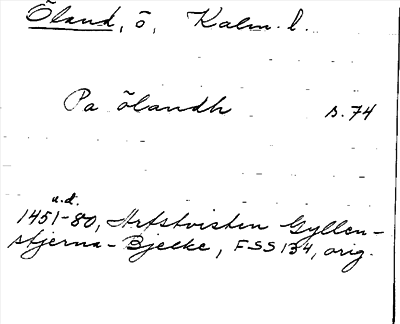 Öland, ö, Kalm. l.
Pa ölandh s. 74
u.d.
1451-80, Arfstvisten Gyllen-
stjerna-Bjelke, FSS 134, orig.